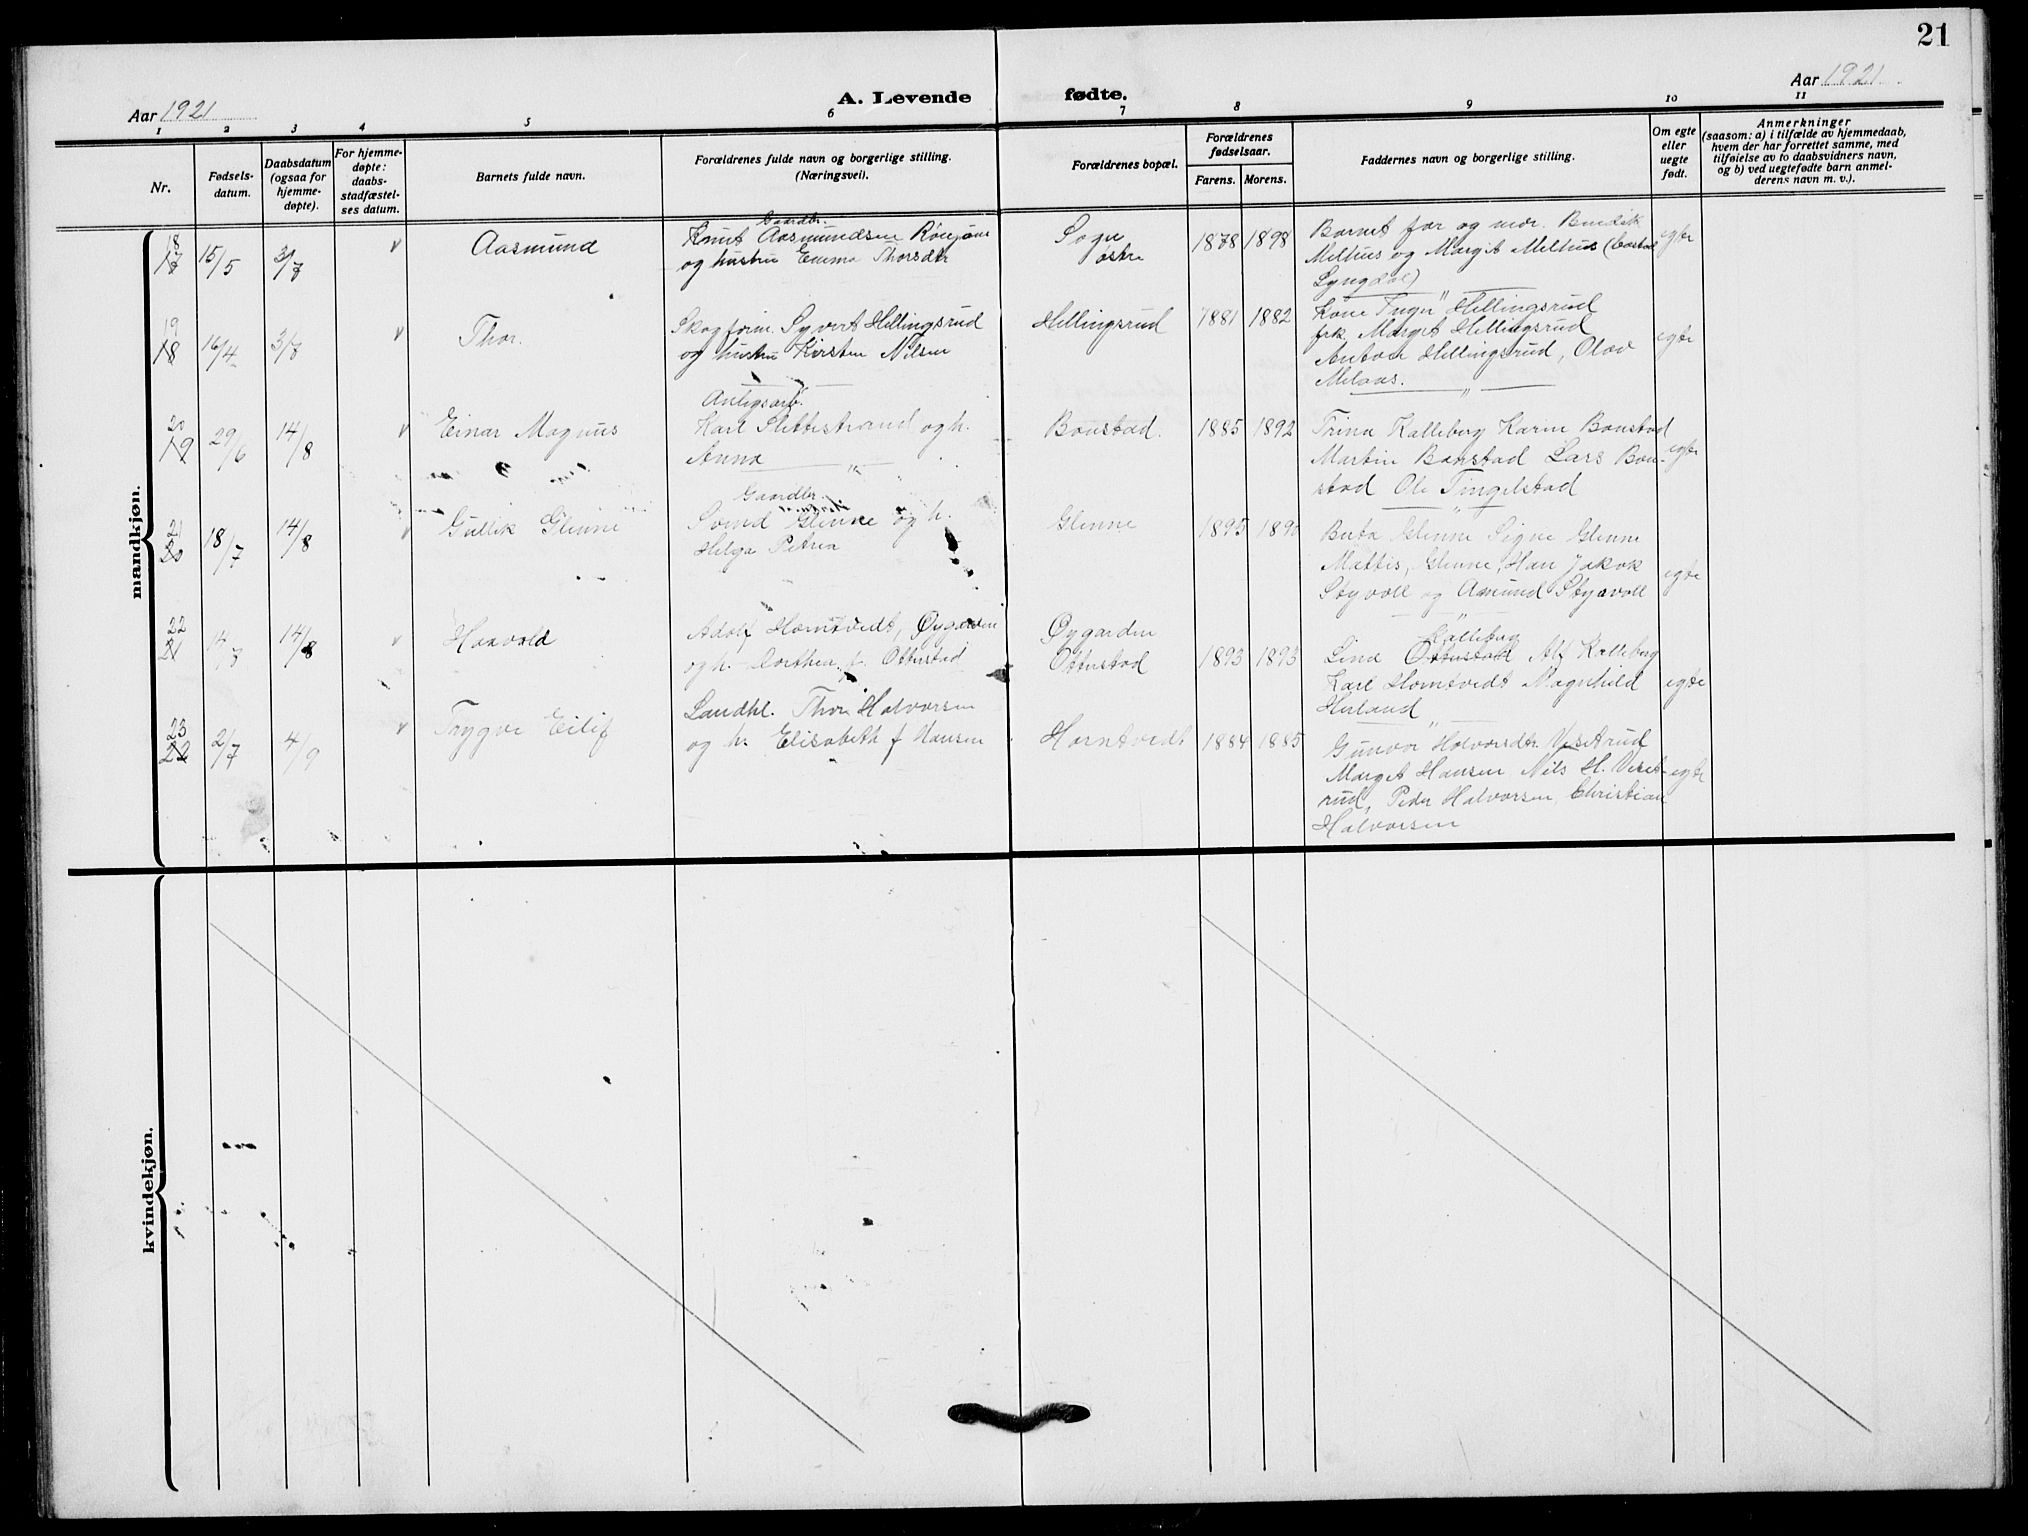 21
Aar 1921
A. Levende
fødte.
Aar 1921
1 2 3 4 5 6 7 8 9 10 11
Nr.
Fødsels-
datum.
Daabsdatum
(ogsaa for
hjemme-
døpte).
For hjemme-
døpte:
daabs-
stadfæstel-
ses datum.
Barnets fulde navn.
Forældrenes fulde navn og borgerlige stilling.
(Næringsvei).
Forældrenes bopæl.
Forældrenes
fødselsaar.
Farens. Morens.
Faddernes navn og borgerlige stilling.
Om egte
eller
uegte
født.
Anmerkninger
(saasom: a) i tilfælde av hjemmedaab,
hvem der har forrettet samme, med
tilføielse av to daabsvidners navn,
og b) ved uegtefødte barn anmel-
derens navn m. v.).
mandkjøn.
18
17
15/5
3/7
v
Aasmund
Gaardbr.
Knut Aasmundsen
og hustru Emma Thorsdtr
østre
1878 1898
Barnet far og mor.
Melhus og Margit Melhus
Lyngdal)
egte
19
18
16/4
3/7
v
Thor.
Skogform. Syvert Hellingsrud
og hustru Kirsten Nilsen
Hellingsrud
1881 1882
Kone Inger Hellingsrud
frk. Margit Hellingsrud
Anton Hellingsrud, Olav
Melaas.
egte
20
19
29/6
14/8
v
Einar Magnus
Anlegsarb.
Karl Slettestrand og h.
Anna
Bonstad.
1885 1892
Trina Kalleberg Karin Bonstad
Martin Bonstad Lars Bon-
stad Ole Tingelstad
egte
21
20
18/7
14/8
v
Gullik Glenne
Gaardbr.
Glenne og h.
Helga Petrea
Glenne
1895 1890
Glenne Signe Glenne
Mattis Glenne, Jakok
Styvoll og Amund Styvoll
egte
22
21
14/8
v
Haavald
Adolf Homtvedt, Øygarden
og h. Dorthea f. Ottestad
Øygarden
Ottestad
1893 1893
Kalleberg
Line Ottestad Alf Kalleberg
Karl Homtvedt Magnhild
egte
23
22
2/7
4/9
v
Trygve Eilif
Landhl. Thor Halvorsen
og h. Elisabeth f Hansen
Horntvedt
1884 1885
Gunvor Halvorsdtr.
Margit Hansen Nils H.
rud, Peder Halvorsen, Christian
Halvorsen
egte
kvindekjøn.